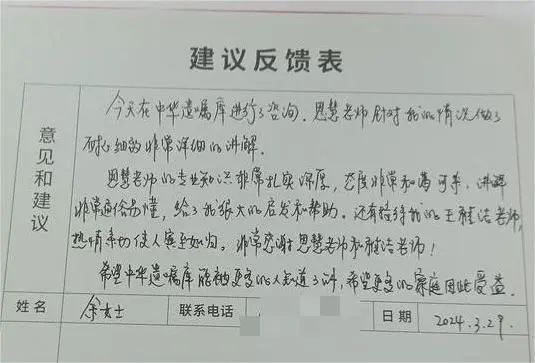 建议反馈表
意见和建议
今天在中华遗嘱库进行了咨询,思慧老师针对我的情况做了
耐心细致非常详细的讲解.
思慧老师的专业知识非常扎实深厚,态度非常和蔼可亲,讲解
非常通俗易懂,给了我很大的启发和帮助。还有接待我的王雅洁老师,
热情亲切使人宾至如归。非常感谢思慧老师和雅洁老师!
希望中华遗嘱库能被更多的人知道了解,希望更多的家庭因此受益.
姓名 余女士 联系电话 日期 2024.3.29.